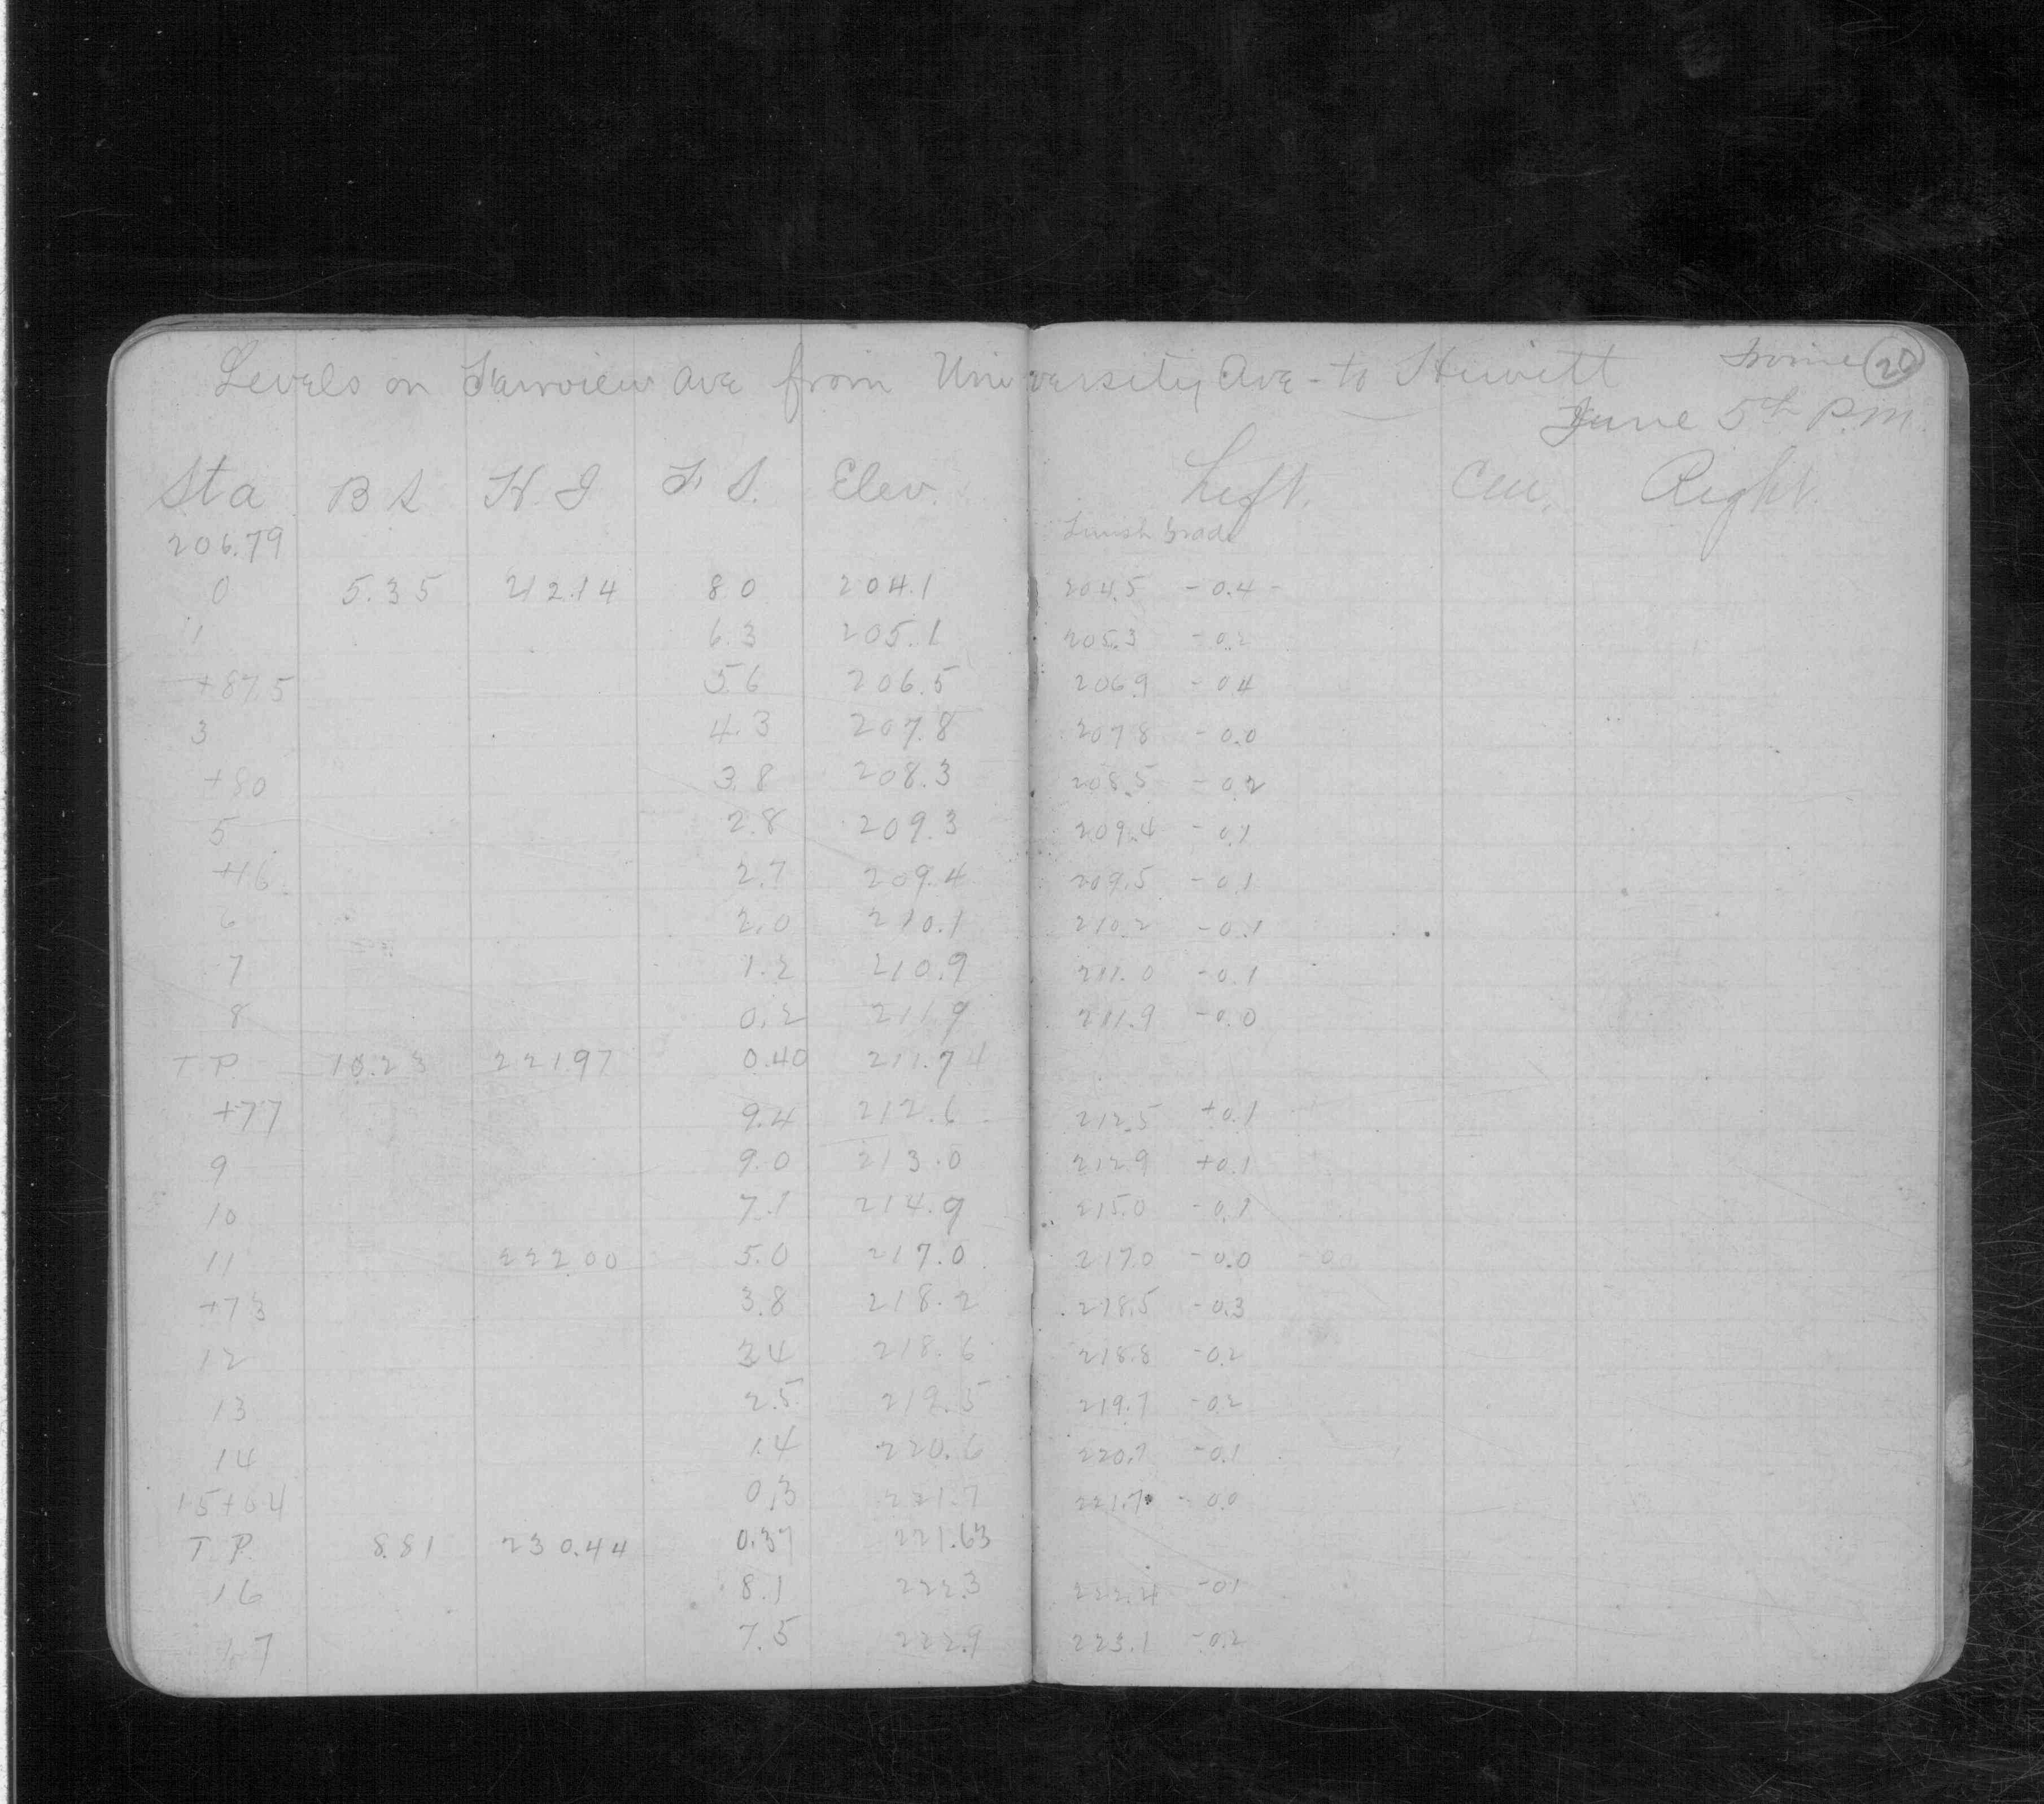 Levels on Fairview Ave from University Ave - to Hewitt Irvine 20
June 5th P.M.
Sta B S H. I F S. Elev. Left. Cen. Right.
206.79 Finish Grade
0 5.35 212.14 8.0 204.1 204.5 - 0.4 -
1 6.3 205.1 205.3 - 0.2
+87.5 5.6 206.5 206.9 - 0.4
3 4.3 207.8 207.8 - 0.0
+80 3.8 208.3 208.5 - 0.2
5 2.8 209.3 209.4 - 0.1
+16 2.7 209.4 209.5 - 0.1
6 2.0 210.1 210.2 - 0.1
7 1.2 210.9 211.0 - 0.1
8 0.2 211.9 211.9 - 0.0
T.P. 10.23 221.97 0.40 211.74
+77 9.4 212.6 212.5 + 0.1
9 9.0 213.0 212.9 + 0.1
10 7.1 214.9 215.0 - 0.1
11 222.00 5.0 217.0 217.0 - 0.0 - 0.0
+73 3.8 218.2 218.5 - 0.3
12 3.4 218.6 218.8 - 0.2
13 2.5 219.5 219.7 - 0.2
14 1.4 220.6 220.7 - 0.1
15+04 0.3 221.7 221.7 - 0.0
T.P. 8.81 230.44 0.37 221.63
16 8.1 222.3 222.4 - 0.1
17 7.5 222.9 223.1 - 0.2